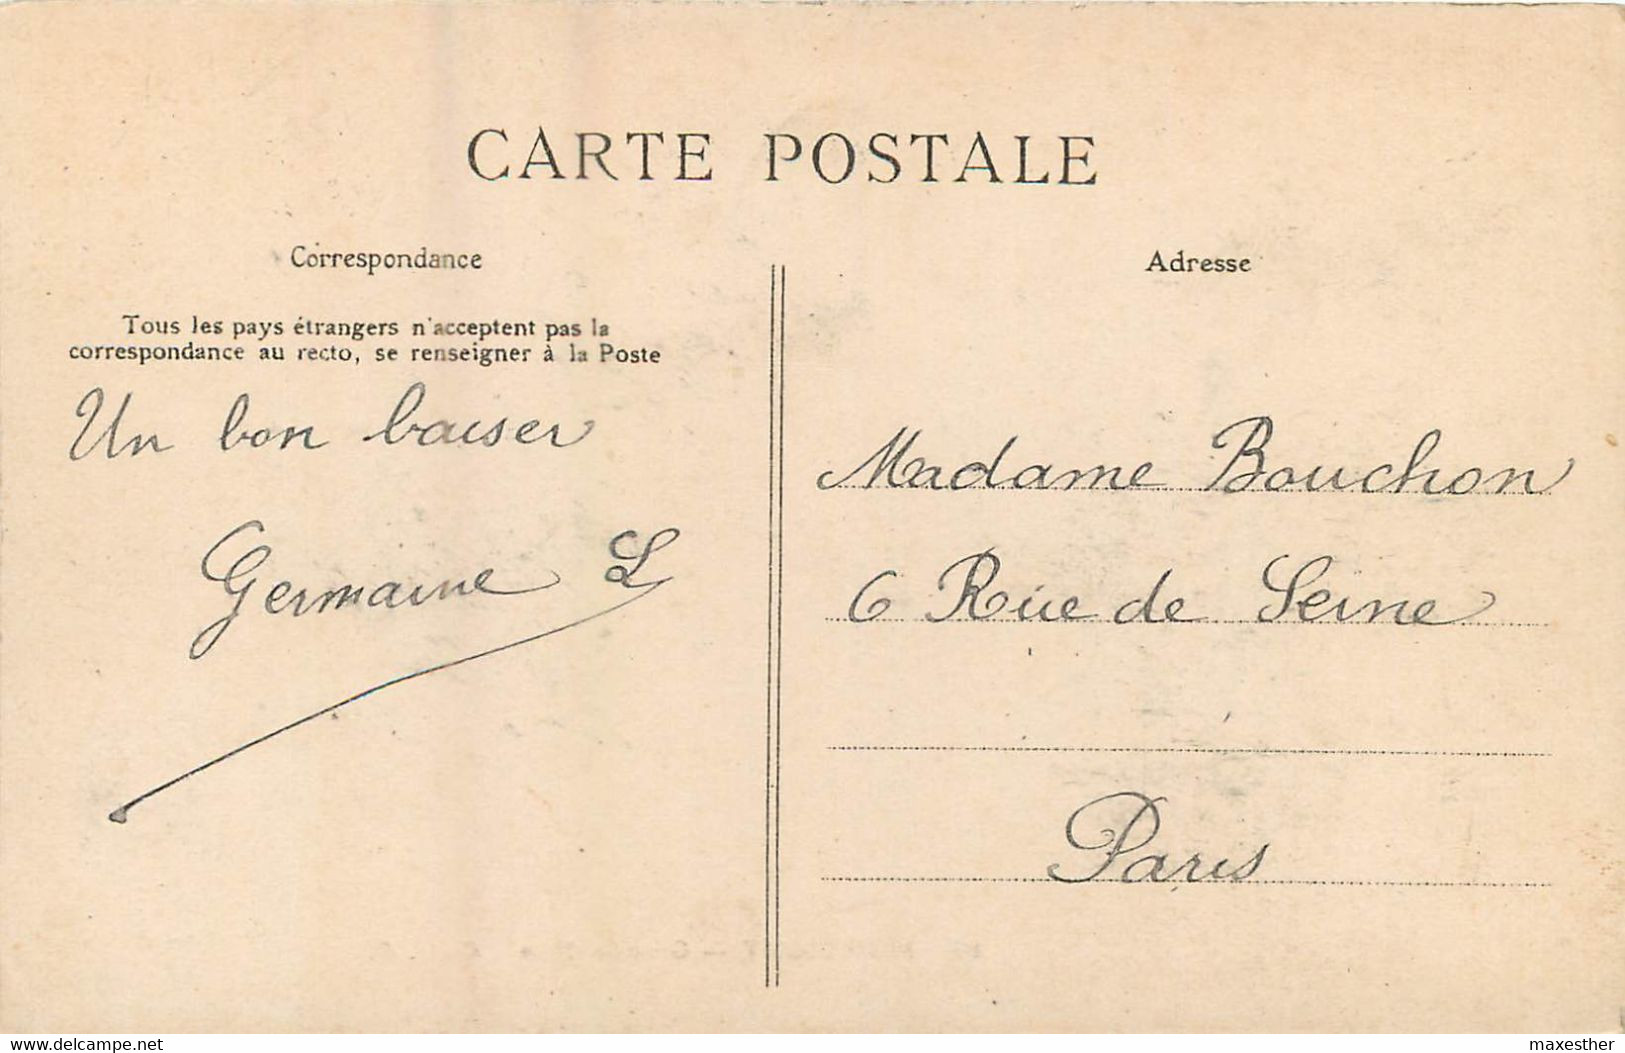 CARTE POSTALE
Correspondance
Tous les pays étrangers n'acceptent pas la
correspondance au recto, se renseigner à la Poste
Un bon baiser
Germaine L
Adresse
Madame Bouchon
6 Rue de Seine
Paris
www.delcampe.net
maxesther